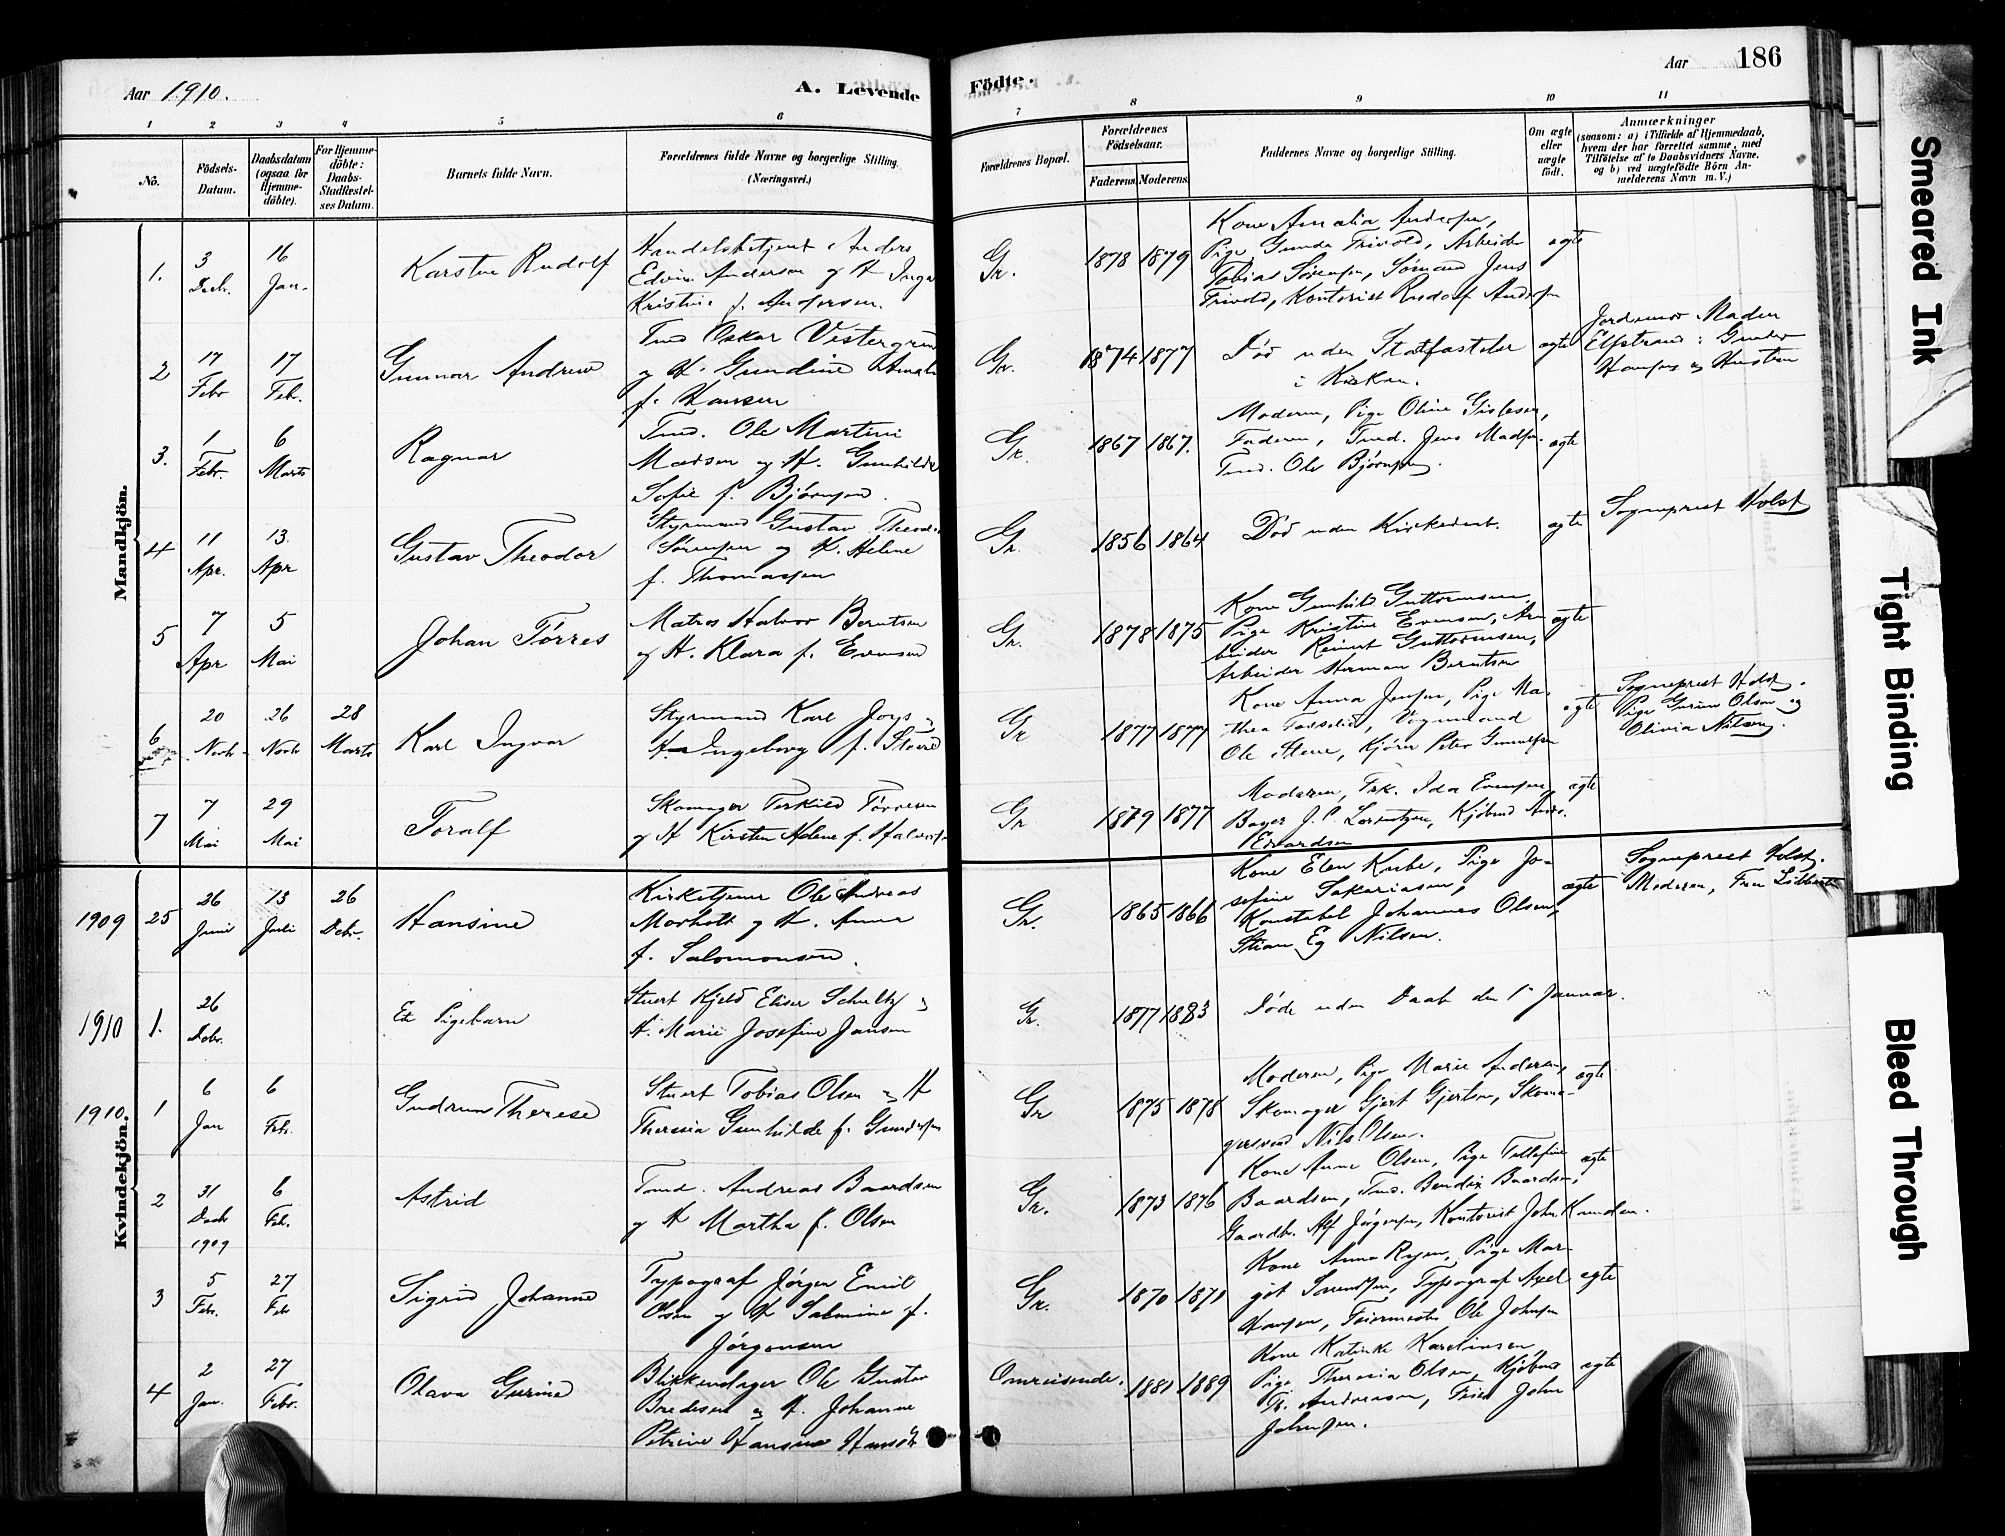 Aar 1910.
A. Levende
Födte.
Aar
186
1 2 3 4 5 6 7 8 9 10 11
No.
Födsels-Datum.
Daabsdatum (ogsaa for Hjemmedöbte).
For Hjemmedöbte: Daabs-Stadfæstelses Datum.
Barnets fulde Navn.
Forældrenes fulde Navne og borgerlige Stilling.
(Næringsvei.)
Forældrenes Bopæl.
Forældrenes Födselsaar.
Faderens. Moderens.
Faddernes Navne og borgerlige Stilling.
Om ægte eller uægte födt.
Anmærkninger
(saasom: a) i Tilfælde af Hjemmedaab, hvem der har forrettet samme, med Tilföielse af to Daabsvidners Navne, og b) ved uægtefödte Börn Anmelderens Navn m. V.)
Mandkjön.
1. 3 Decb. 16 Jan. Karsten Rudolf
Handelsbetjent Anders
Edvin Andersen og H. Inga
Kristine f. Andersen.
Gr. 1878 1879
Kone Amalia Andersen,
Pige Gunda Trivold, Arbeider
Tobias Sørensen, Sømand Jens
Trivold, Kontorist Rudolf Andersen
ægte
2 17 Febr 17 Feb. Gunnar Andrew
Tmd Oskar Vestergren
og H. Gundine Amalie
f. Hansen
Gr. 1874 1877
Død uden Stadfæstelse
i Kirken.
ægte
Jordemor Madam
Elfstrand: Gunder
Hansen og Hustru
3. 1 Febr. 6 Marts Ragnar
Tmd. Ole Martin
Madsen og H. Gunhilde
Sofie f. Bjørnsen.
Gr. 1867 1867.
Moderen, Pige Oline Gislesen,
Faderen, Tmd. Jens Madsen
Tmd. Ole Bjørnsen.
ægte
4 11 Apr. 13. Apr Gustav Theodor
Styrmand Gustav Theodor
Sørensen og H. Helene
f. Thomassen
Gr. 1856 1864
Død uden Kirkedaab.
ægte
Sogneprest Holst
5 7 Apr 5 Mai Johan Tørres
Matros Halvor Berntsen
og H. Klara f. Evensen
Gr. 1878 1875
Kone Gunhild Guttormsen
Pige Kristine Evensen, Ar-
beider Reinert Guttormsen,
Arbeider Herman Berntsen
ægte
6 20 Novb. 26 Novb 28 Marts Karl Ingvar
Styrmand Karl Joys og
H. Ingeborg f. Steene
Gr 1877 1877
Kone Anna Jensen, Pige Ma-
thea, Vognmand
Ole Steene, Kjører Peter Gunnelsen
ægte
Sogneprest Holst.
Pige Gurine Olsen og
Olivia Nilsen.
7 7 Mai 29 Mai Toralf
Skomager Terkild Tørresen
og H Kirsten Helene f. Halvorsen
Gr 1879 1877
Moderen, Frk. Ida Evensen,
Bager J. C. Lorentzen, Kjøbmd Andr.
Edvardsen
ægte
Kvindekjön.
1909 25 26 Juni 13 Juli 26 Debr. Hansine
Kirketjener Ole Andreas
Morholt og H. Anna
f. Salomonsen.
Gr. 1865 1866
Kone Elen Kube, Pige Jo-
sefine Sakariasen,
Konstabel Johannes Olsen,
Stian Eg Nilsen.
ægte
Sogneprest Holst.
Moderen, Fru
1910 1. 26 Debr. Et Pigebarn
Stuert Kjeld Eliser Schultz og
H. Marie Josefine Jansen
Gr. 1877 1883
Døde uden Daab den 1ste Januar.
1910. 1 6 Jan 6 Feb. Gudrun Therese
Stuert Tobias Olsen og H
Theresia Gunhilde f. Gundersen
Gr 1875 1878
Moderen, Pige Marie Andersen,
Skomager Gjert Gjertsen, Skoma-
gersvend Nils Olsen.
ægte
2 31 Decb 1909 6 Feb. Astrid
Tmd. Andreas Baardsen
og H Martha f. Olsen
Gr. 1873 1876
Kone Anna Olsen, Pige Tellefine
Baardsen, Tmd. Bendix Baardsen,
Gaardbr. Alf Jørgensen, Kontorist John Knudsen.
ægte
3 5 Febr. 27 Feb Sigrid Johanne
Typograf Jørgen Emil
Olsen og H Salmine f.
Jørgensen
Gr. 1870 1871
Kone Anna Ryen, Pige Mar-
got Sørensen, Typograf Axel
Hansen, Feiermester Ole Johnsen
ægte
4 2 Jan. 27 Febr. Olava Gurine
Blikkenslager Ole Gustav
Bredesen og H. Johanne
Petrine Hansine Hansen
Omreisende. 1881 1889
Kone Katinka Karelinsen,
Pige Theresia Olsen, Kjøbmd
Th. Andreassen, John
Johnsen.
ægte
Smeared Ink
Tight Binding
Bleed Through